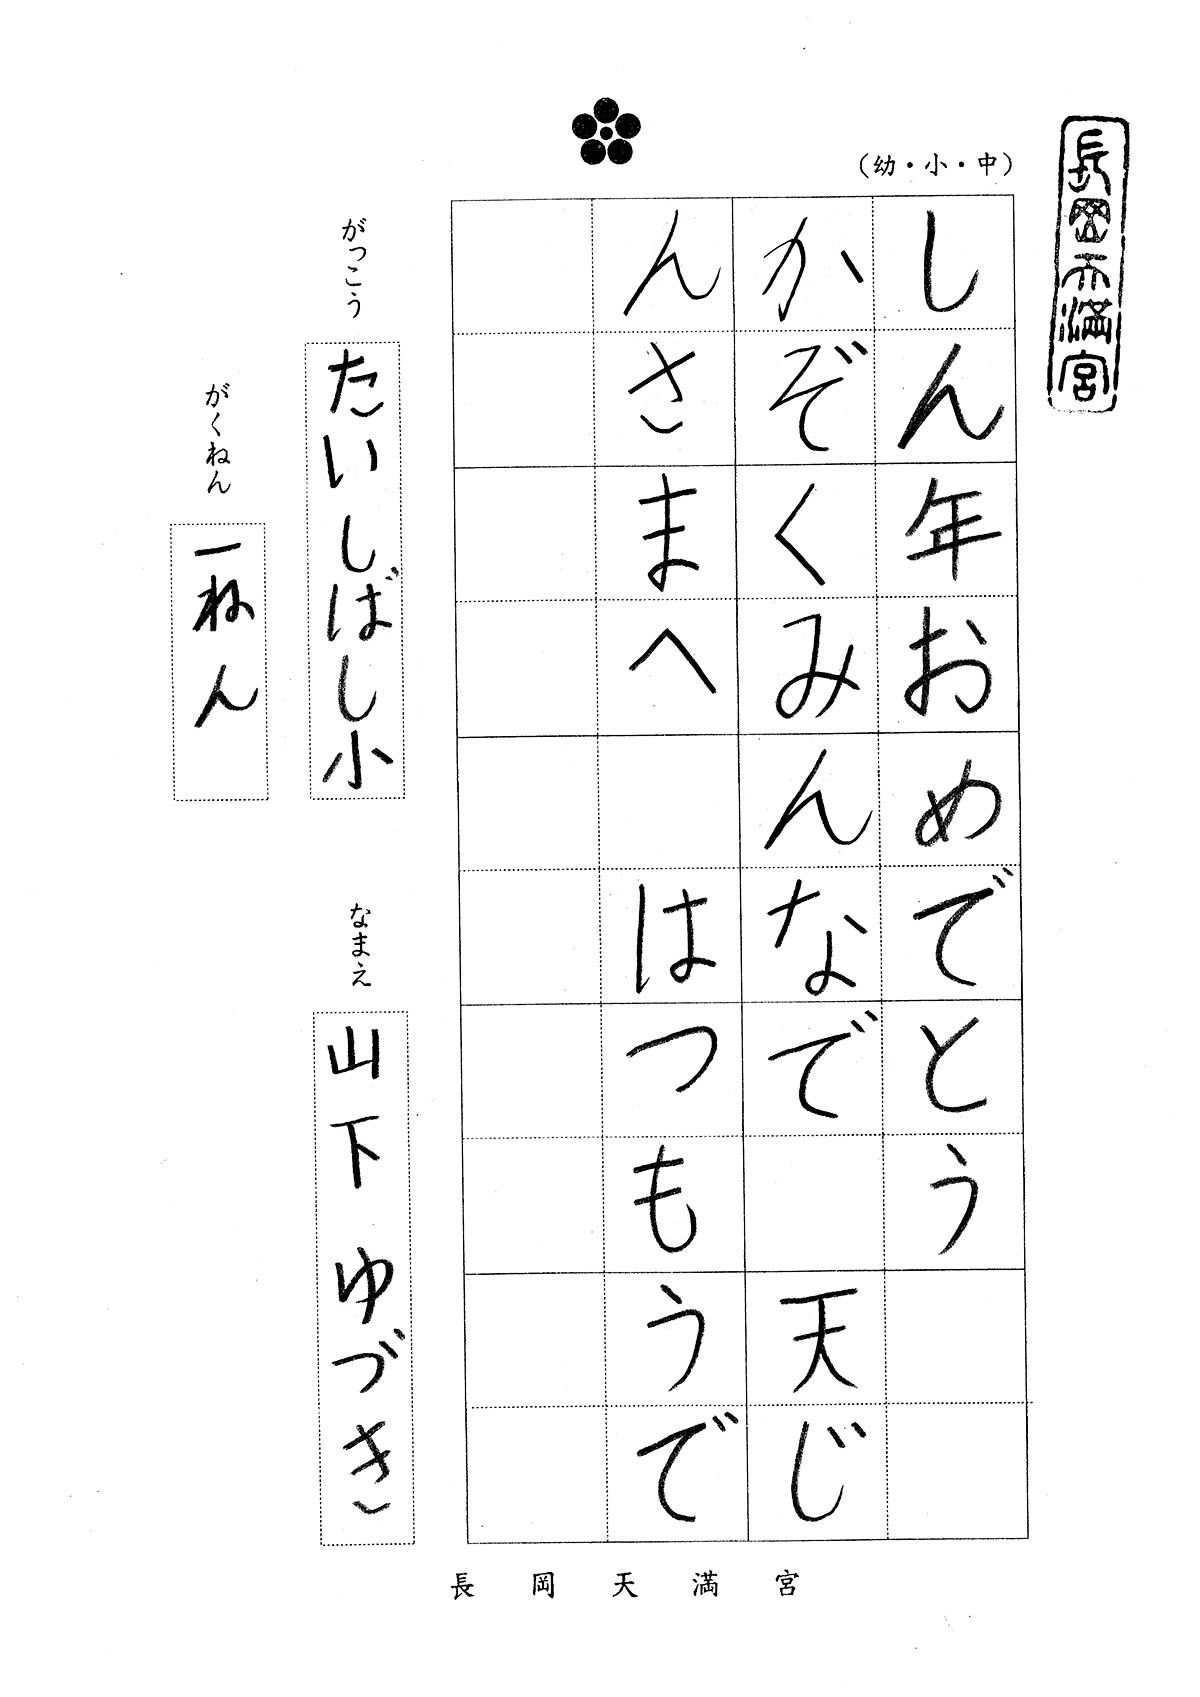 長岡天満宮
（幼・小・中）
しん年おめでとう
かぞくみんなで　天じ
んさまへ　はつもうで
がっこう
たいしばし小
なまえ
山下ゆづき
がくねん
一ねん
長岡天満宮